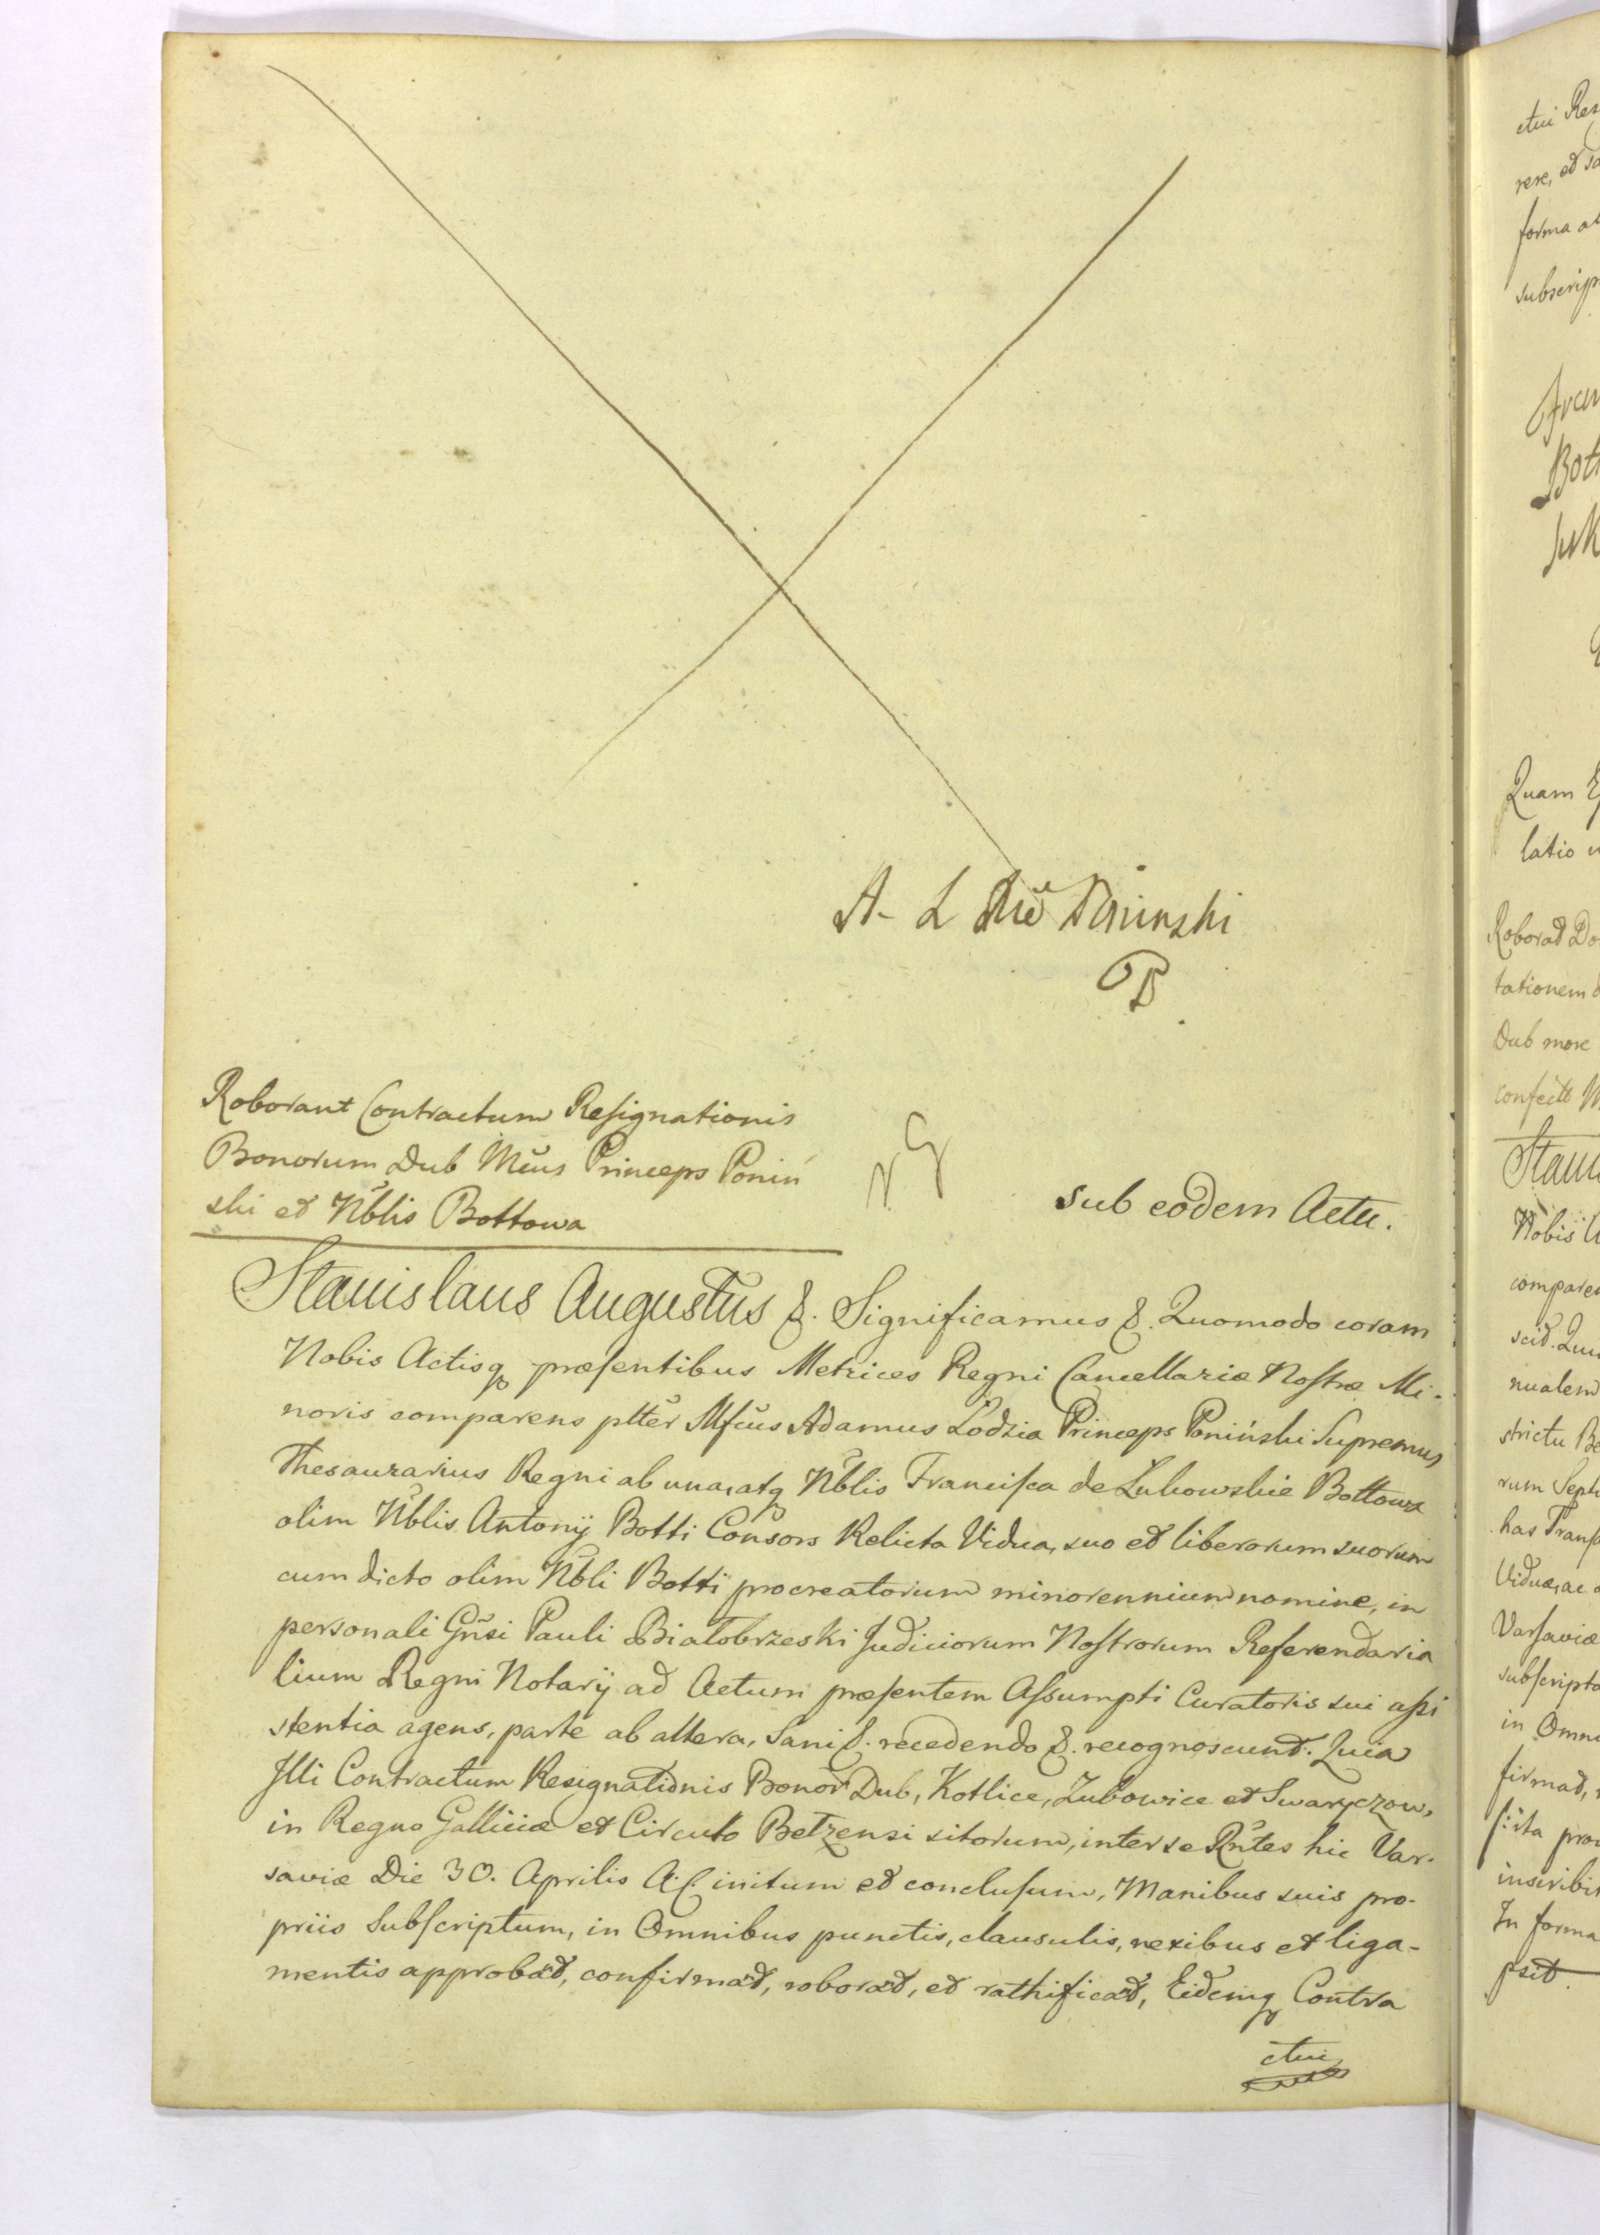 A. L Poninski
Roborant Contractum Resignationis
Bonorum Dub Mcus Princeps Poniń
ski et Nblis Bottowa
sub eodem Actu.
Stanislaus Augustus &. Significamus &. Quomodo coram
Nobis Actisq præsentibus Metrices Regni Cancellariæ Nostræ Mi-
noris comparens ptter Mfcus Adamus Łodzia Princeps Poniński Supremus
Thesaurarius Regni ab una, atq Nblis Francisca de Łukowskie Bottowa
olim Nblis Antonij Botti Consors Relicta Vidua, suo et liberorum suorum
cum dicto olim Nbli Botti procreatorum minorennium nomine, in
personali Gnsi Pauli Białobrzeski Judiciorum Nostrorum Referendaria
lium Regni Notarij ad Actum præsentem Assumpti Curatoris sui assi
stentia agens, parte ab altera, Sani &. recedendo &. recognoscunt. Quia
Illi Contractum Resignationis Bonor Dub, Kotlice, Zubowice et Swaryczow,
in Regno Galliciæ et Circulo Betzensi sitorum, inter se Rntes hic Var-
saviæ Die 30. Aprilis A. C. initum et conclusum, Manibus suis pro-
priis Subscriptum, in Omnibus punctis, clausulis, nexibus et liga-
mentis approbad, confirmad, roborad, et rathificad, Eidemq Contra
ctui
ctui
rere, et
forma
Bot
Quam
latio
Roborad Do
tationem
Dub more
Nobis
nualem
strictu Be
rum Sept
has Trans
Viduæ, ac
Varsaviæ
subscripto
in Omni
firmad,
In forma